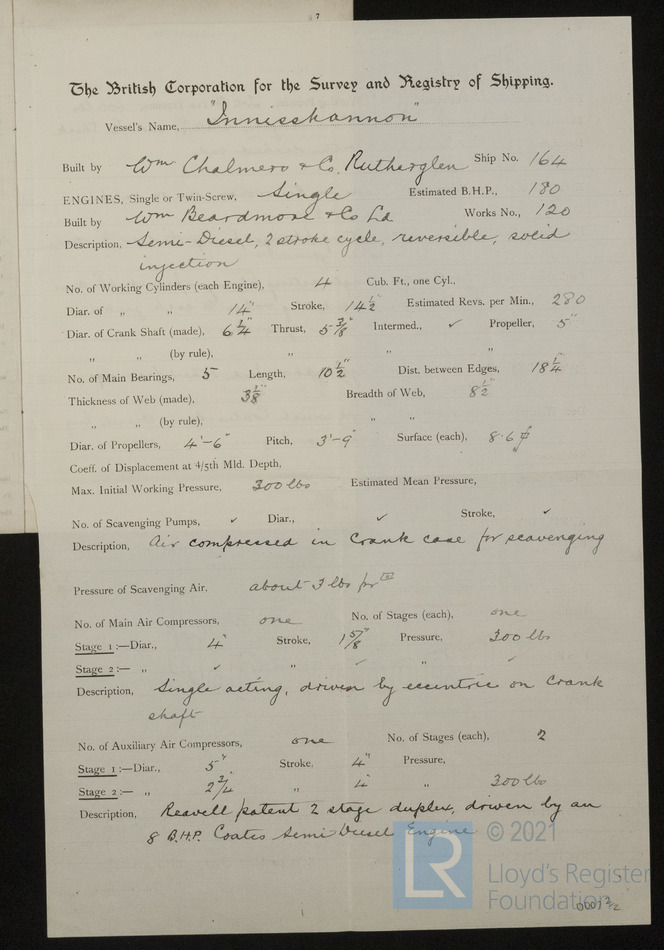 7
The British Corporation for the Survey and Registry of Shipping.
Vessel's Name, "Innisshannon"
Built by Wm Chalmers & Co. Rutherglen Ship No. 164
ENGINES, Single or Twin-Screw, Single Estimated B.H.P., 180
Built by Wm Beardmore & Co Ld Works No., 120
Description, Semi-Diesel, 2 stroke cycle, reversible, solid
injection
No. of Working Cylinders (each Engine), 4 Cub. Ft., one Cyl.,
Diar. of " " 14" Stroke, 14 1/2" Estimated Revs. per Min., 280
Diar. of Crank Shaft (made), 6 1/4" Thrust, 5 3/8" Intermed., ✓ Propeller, 5"
" " (by rule), " " "
No. of Main Bearings, 5 Length, 10 1/2" Dist. between Edges, 18 1/4"
Thickness of Web (made), Breadth of Web, 8 1/2"
" " (by rule), " "
Diar. of Propellers, 4'-6" Pitch, 3'-9" Surface (each), 8.6
Coeff. of Displacement at 4/5th Mld. Depth,
Max. Initial Working Pressure, 300 lbs Estimated Mean Pressure,
No. of Scavenging Pumps, ✓ Diar., ✓ Stroke, ✓
Description, Air compressed in crank case for scavenging
Pressure of Scavenging Air, about 3 lbs pr
No. of Main Air Compressors, one No. of Stages (each), one
Stage 1:—Diar., 4" Stroke, 1 5/8" Pressure, 300 lbs
Stage 2:— " ✓ " ✓ " ✓
Description, Single acting, driven by eccentric on crank
shaft
No. of Auxiliary Air Compressors, one No. of Stages (each), 2
Stage 1:—Diar., 5" Stroke, 4" Pressure,
Stage 2:— " 2 3/4" " 4" " 300 lbs
Description, Reavell patent 2 stage duplex, driven by an
8 B.H.P. Coates Semi Diesel Engine
LR © 2021
Lloyd's Register
Foundation